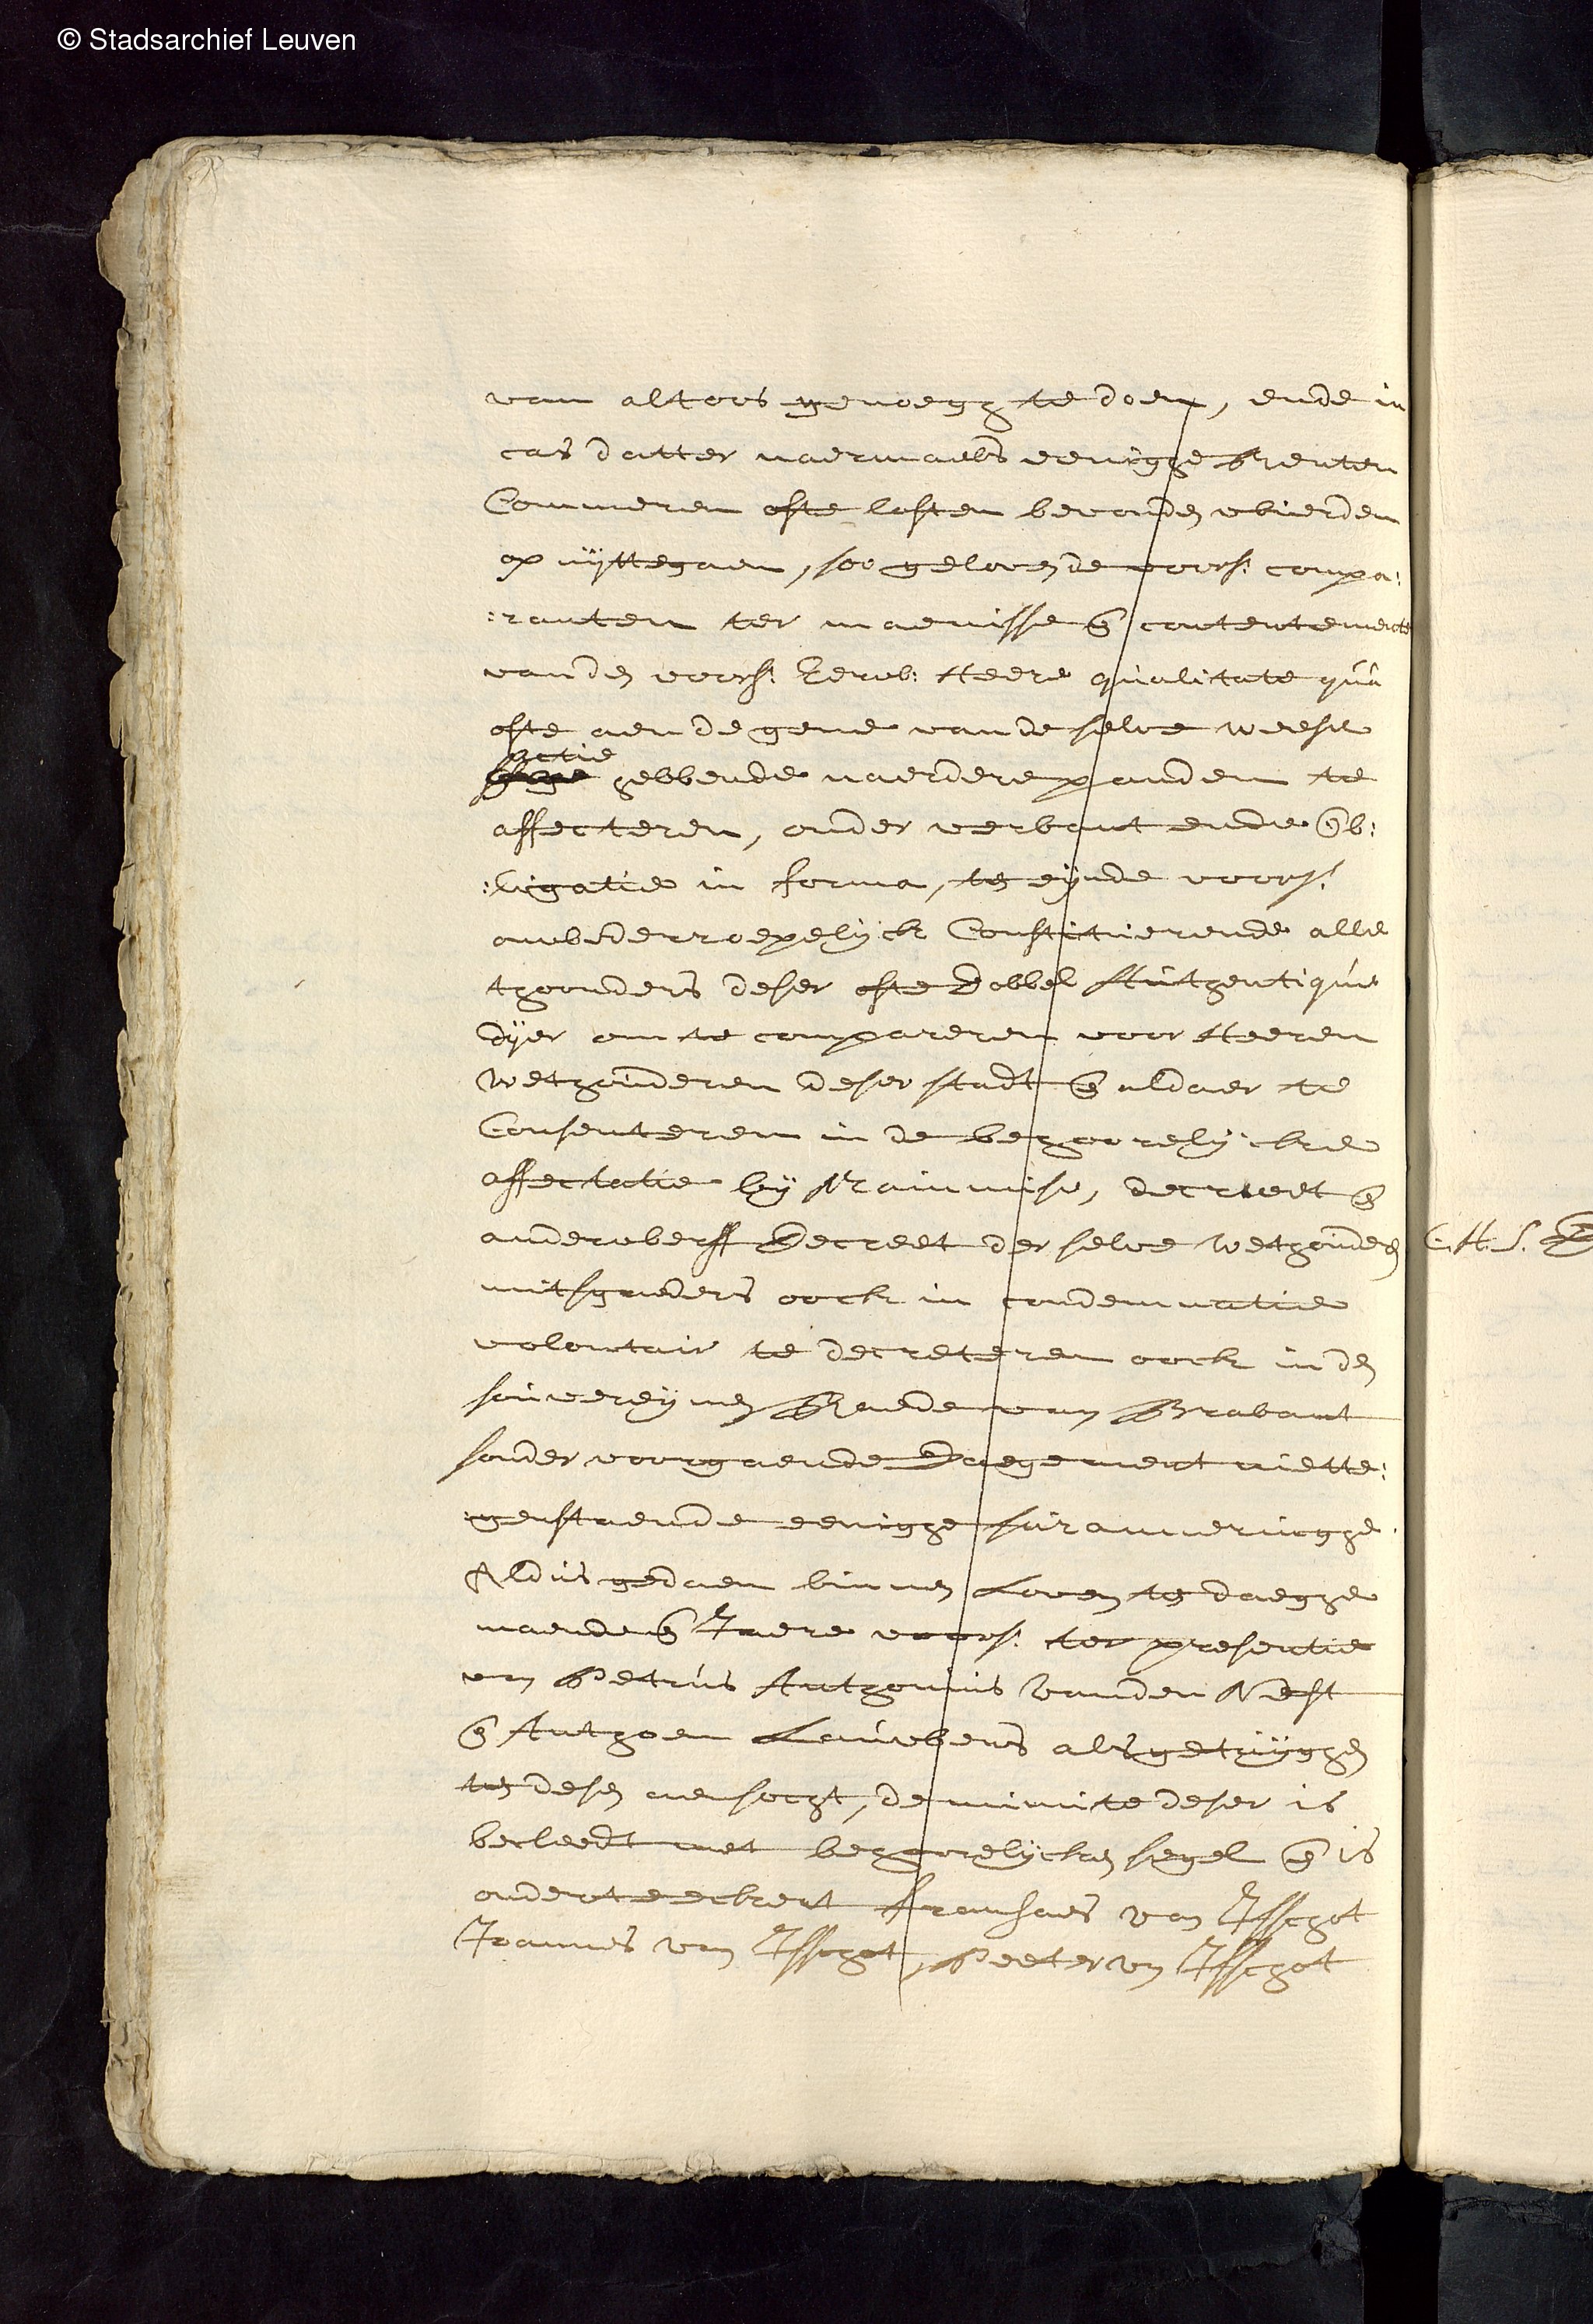 © Stadsarchief Leuven
van altoos genoegh te doen, ende in
cas datter naermaels eenighe renten
Commeren ofte lasten bevonden wierden
op uÿttegaen, soo geloven de voors: compa:
:ranten ter maenisse en contentemente
vanden voors: Eerw: Heere qualitate qua
ofte aen de gene van de selve weesen
actie
hebbende naerdere panden te
affecteren, onder verbant ende ob:
:ligatie in forma, ten eÿnde voors:
onwederroepelÿck Constituerende alle
thoonders deser ofte dobbel Authentique
dÿer om te compareren voor Heeren
Wethouderen deser stadt en aldaer te
Consenteren in de behoorelÿcke
affectatie bÿ mainmise, decreet en
anderwerff Decreet der selve Wethouderen
mitsgaders oock in condemnatie
volontair te decreteren oock inden
souvereÿnen Raede van Brabant
sonder voorgaende Dagement niette:
:genstaende eenighe suranneringhe
Aldus gedaen binnen Loven ten daeghe
maende en Jaere voors: ter presentie
van Petrus Anthonius Vanden Nest
en Anthoen Lauwers als getuÿghen
tot desen aensocht, de minute deser is
becleedt met behoorelÿcken segel en is
onderteeckent Fransoes van Isschot
Joannes van Isschot, Peeter van Isschot
C. H. S.